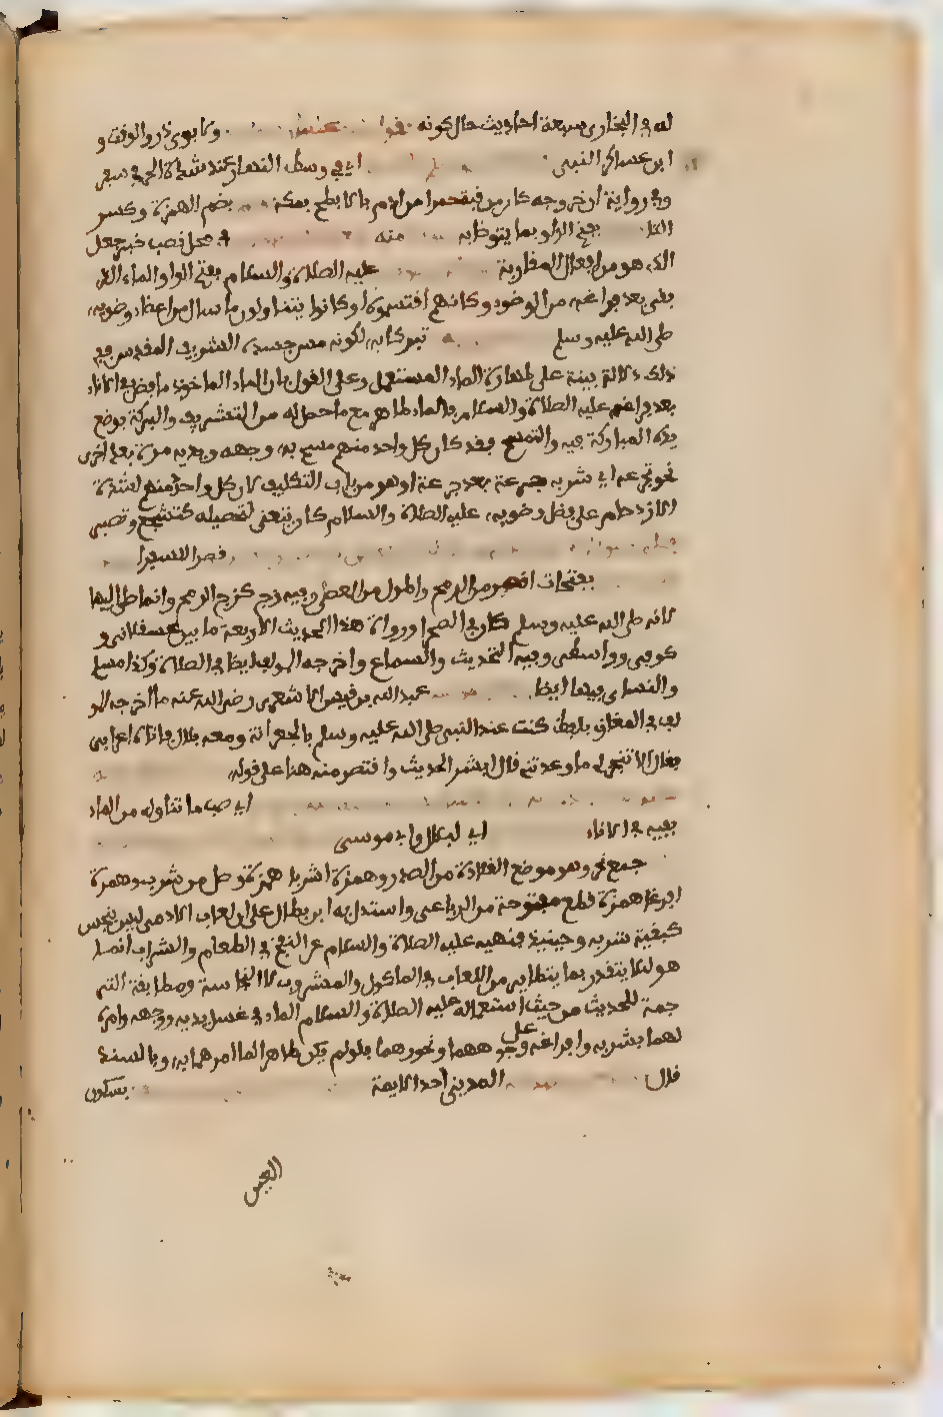 له في البخاري سبعة احاديث حال كونه يقول ولابوي ذر والوقت و
ابن عساكر النبي اي في وسط النهار عند شدة الحر في سفر
وفي رواية ان خروجه كان من قبة حمراء من ادم بالابطح بمكة بضم الهمزة وكسر
التا بفتح الواو بما يتوضا به منه في محل نصب خبر جعل
الذي هو من افعال المقاربة عليه الصلاة والسلام بفتح الواو الماء الذي
بقي بعد فراغه من الوضوء وكانهم اقتسموه او كانوا يتناولون ما سال من اعضاء وضويه
صلى الله عليه وسلم تبركا به لكونه مس جسده الشريف المقدس وفي
ذلك دلالة بينة على طهارة الماء المستعمل وعلى القول بان الماء الماخوذ ما فضل في الاناء
بعد فراغه عليه الصلاة والسلام فالماء طاهر مع ما حصل له من التشريف والبركة بوضع
يده المباركة فيه والتمسح وقد كان كل واحد منهم مسح به وجهه ويديه مرة بعد اخرى
نحو تجرعه اي شربه جرعة بعد جرعة او هو من باب التكلف كان كل واحد منهم لشدة
الازدحام على فضل وضويه عليه الصلاة والسلام كان يتعنى لتحصيله كتشجع وتصبر
قصرا للسفر
بفتحات اقصر من الرمح واطول من العصى وفيه زج كزج الرمح وانما صلى اليها
لانه صلى الله عليه وسلم كان في الصحرا ورواة هذا الحديث الاربعة ما بين عسقلاني و
كوفي وواسطي وفيه التحديث والسماع واخرجه المولف ايضا في الصلاة وكذا مسلم
والنساى فيها ايضا عبد الله بن قيس الاشعري رضي الله عنه ما اخرجه المو
لف في المغازي بلفظ كنت عند النبي صلى الله عليه وسلم بالجعرانة ومعه بلال فاتاه اعرابي
فقال الا تنجز لي ما وعدتني قال ابشر الحديث واقتصر منه هنا على قوله
اي صب ما تناوله من الماء
بفيه في الاناء اي لبلال وابي موسى
جمع نحر وهو موضع القلادة من الصدر وهمزة اشربا همزة وصل من شرب وهمزة
افرغا همزة قطع مفتوحة من الرباعي واستدل به ابن بطال على ان لعاب الادمي ليس بنجس
كبقية شربه وحينيذ فنهيه عليه الصلاة والسلام عن النفخ في الطعام والشراب انما
هو لئلا يتقذر بما يتطاير من اللعاب في الماكول والمشروب لا لنجاسة ومطابقة التر
جمة للحديث من حيث استعماله عليه الصلاة والسلام الماء في غسل يديه ووجهه وامره
لهما بشربه وافراغه على وجوههما ونحورهما فلو لم يكن طاهرا لما امرهما به وبالسند
قال المديني احد الايمة بسكون
العين